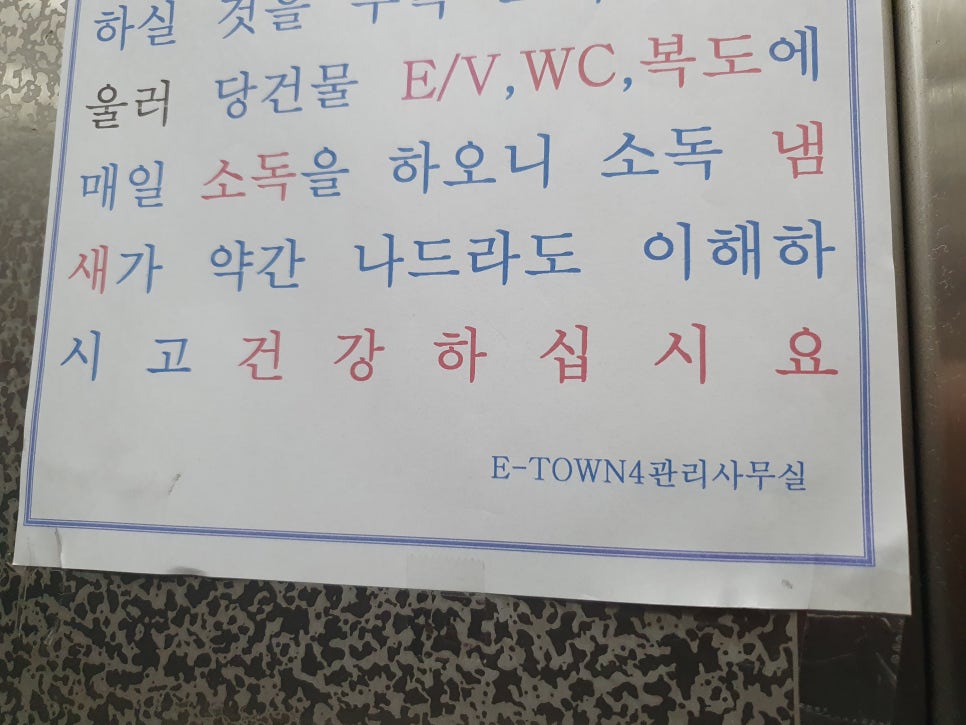 하실 것을
울러 당건물 E/V,WC,복도에
매일 소독을 하오니 소독 냄
새가 약간 나드라도 이해하
시 고 건 강 하 십 시 요
E-TOWN4관리사무실